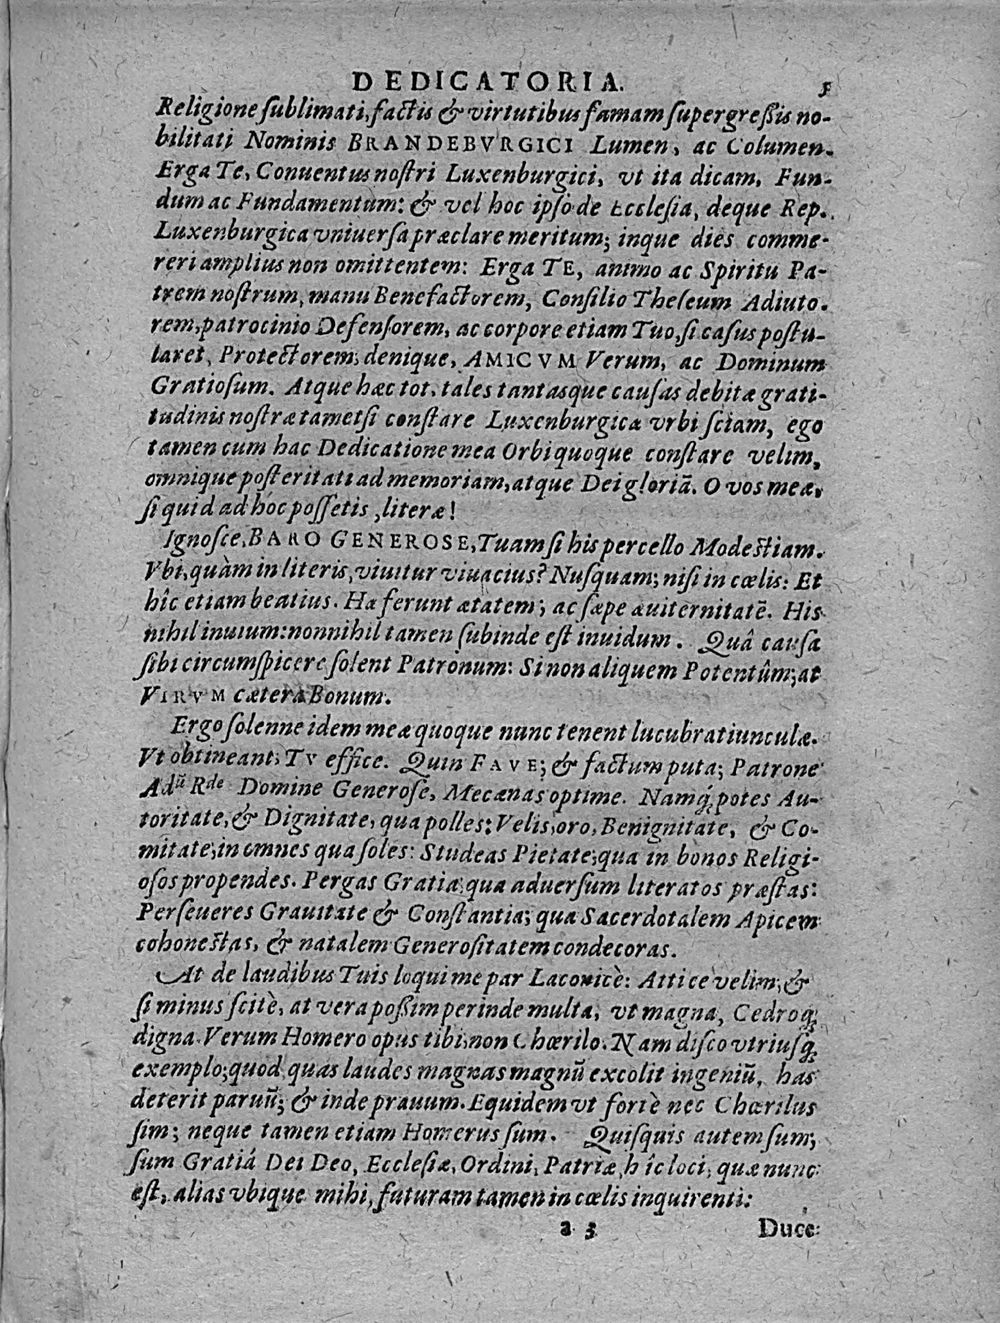 DEDICATORIA. 5
Religione ſublimati, factis & virtutibus famam ſupergreßis no-
bilitati Nominis BRANDEBVRGICI Lumen, ac Columen.
Erga Te, Conuentus noſtri Luxenburgici, vt ita dicam, Fun-
dum ac Fundamentum: & vel hoc ipſo de Eccleſia, deque Rep.
Luxenburgica vniuerſa præclare meritum; inque dies comme-
reri amplius non omittentem: Erga TE, animo ac Spiritu Pa-
trem noſtrum, manu Benefactorem, Conſilio Theſeum Adiuto-
rem, patrocinio Defenſorem, ac corpore etiam Tuo, ſi caſus poſtu-
laret, Protectorem; denique, AMICVM Verum, ac Dominum
Gratioſum. Atque hæc tot, tales tantasque cauſas debitæ grati-
tudinis noſtræ tametſi conſtare Luxenburgicæ vrbi ſciam, ego
tamen cum hac Dedicatione mea Orbi quoque conſtare velim,
omnique poſteritati ad memoriam, atque Dei gloriā. O vos meæ,
ſi quid ad hoc poſſetis, literæ!
Ignoſce, BARO GENEROSE, Tuam ſi his percello Modeſtiam.
Vbi, quàm in literis, viuitur viuacius? Nuſquam; niſi in cœlis: Et
hîc etiam beatius. Hæ ferunt ætatem; ac ſæpe æuiternitatē. His
nihil inuium: nonnihil tamen ſubinde eſt inuidum. Quâ cauſa
ſibi circumſpicere ſolent Patronum: Si non aliquem Potentûm; at
VIRVM cætera Bonum.
Ergo ſolenne idem meæ quoque nunc tenent lucubratiunculæ.
Vt obtineant; TV effice. Quin FAVE; & factum puta; Patrone
Adū Rde Domine Generoſe, Mecænas optime. Namq́; potes Au-
toritate, & Dignitate, qua polles: Velis, oro, Benignitate, & Co-
mitate, in omnes qua ſoles: Studeas Pietate, qua in bonos Religi-
oſos propendes. Pergas Gratia, qua aduerſum literatos præſtas:
Perſeueres Grauitate & Conſtantia; qua Sacerdotalem Apicem
cohoneſtas, & natalem Generoſitatem condecoras.
At de laudibus Tuis loqui me par Laconicè: Attice velim, &
ſi minus ſcitè, at vera poßim perinde multa, vt magna, Cedroq́;
digna. Verum Homero opus tibi, non Chœrilo. Nam diſco vtriuſq́;
exemplo; quod, quas laudes magnas magnū excolit ingeniū, has
deterit paruū; & inde prauum. Equidem vt fortè nec Chœrilus
ſim; neque tamen etiam Homerus ſum. Quiſquis autem ſum;
ſum Gratiâ Dei Deo, Eccleſiæ, Ordini, Patriæ, hîc loci, quæ nunc
eſt, alias vbique mihi, futuram tamen in cœlis inquirenti:
a 3 Duce